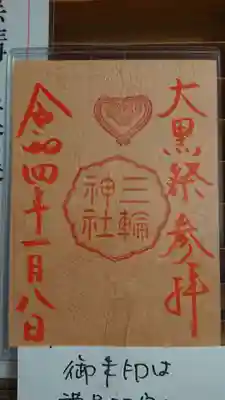 大黒祭参拝
三輪
神社
令和四年十一月八日
御朱印は